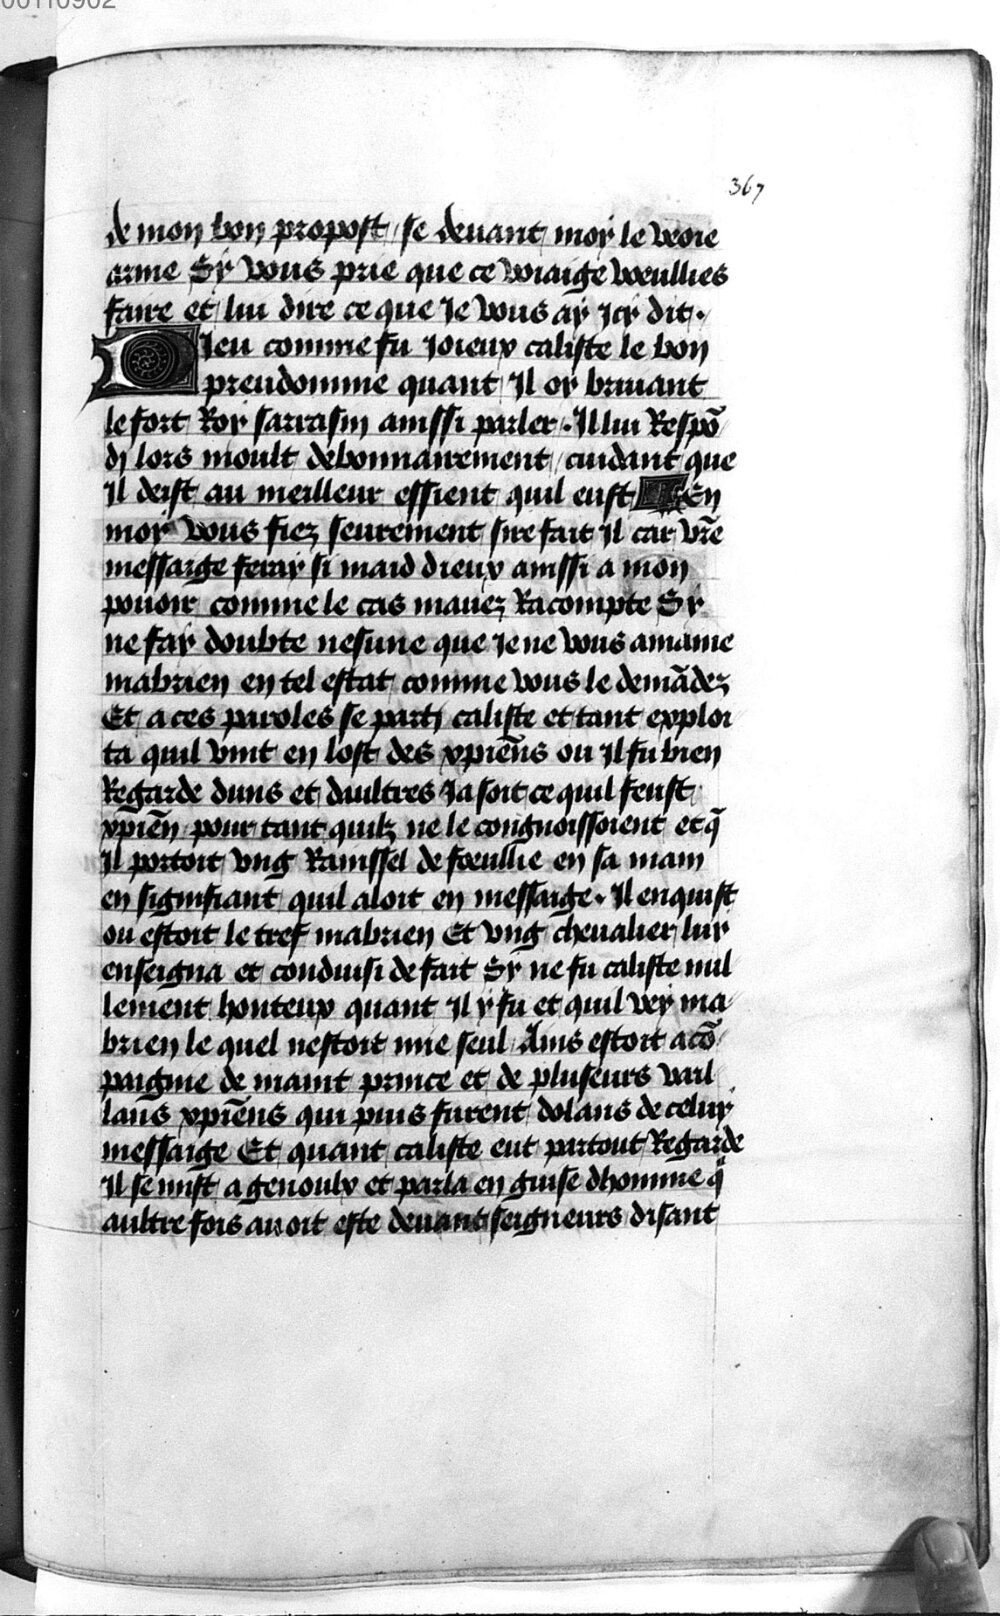 00110902
367
de mon bon propost / se deuant moy le veoie
arme Sy vous prie que ce voiaige voeullies
faire et lui dire ce que Je vous ay Jcy dit.
DIeu comme fu Joieux caliste le bon
preudomme quant Il oy bruiant
le fort Roy sarrasin ainssi parler. Il lui Respō
dj lors moult debonnairement / cuidant que
Il deist au meilleur essient quil eust En
moy vous fiez seurement sire fait Il car vr̄e
messaige feray si maid dieux ainssi a mon
pouoir comme le cas mauez Racompte Sy
ne fay doubte nesune que Je ne vous amaine
mabrien en tel estat comme vous le demādez
Et a ces paroles se partj caliste et tant exploi
ta quil vint en lost des xpiēns ou Il fu bien
Regarde duns et daultres Ja soit ce quil feust
xpiēn pour tant quilz ne le congnoissoient et q̄
Il portoit vng Rainssel de foeullie en sa main
en signifiant quil aloit en messaige. Il enquist
ou estoit le tref mabrien Et vng cheualier luy
enseigna et conduisi de fait Sy ne fu caliste nul
lement honteux quant Il y fu et quil vey ma
brien le quel nestoit mie seul Ains estoit acō
paignie de maint prince et de pluseurs vail
lans xpiēns qui puis furent dolans de celuy
messaige Et quant caliste eut partout Regarde
Il se mist a genoulx et parla en guise dhomme q̄
aultre fois auoit este deuant seigneurs disant